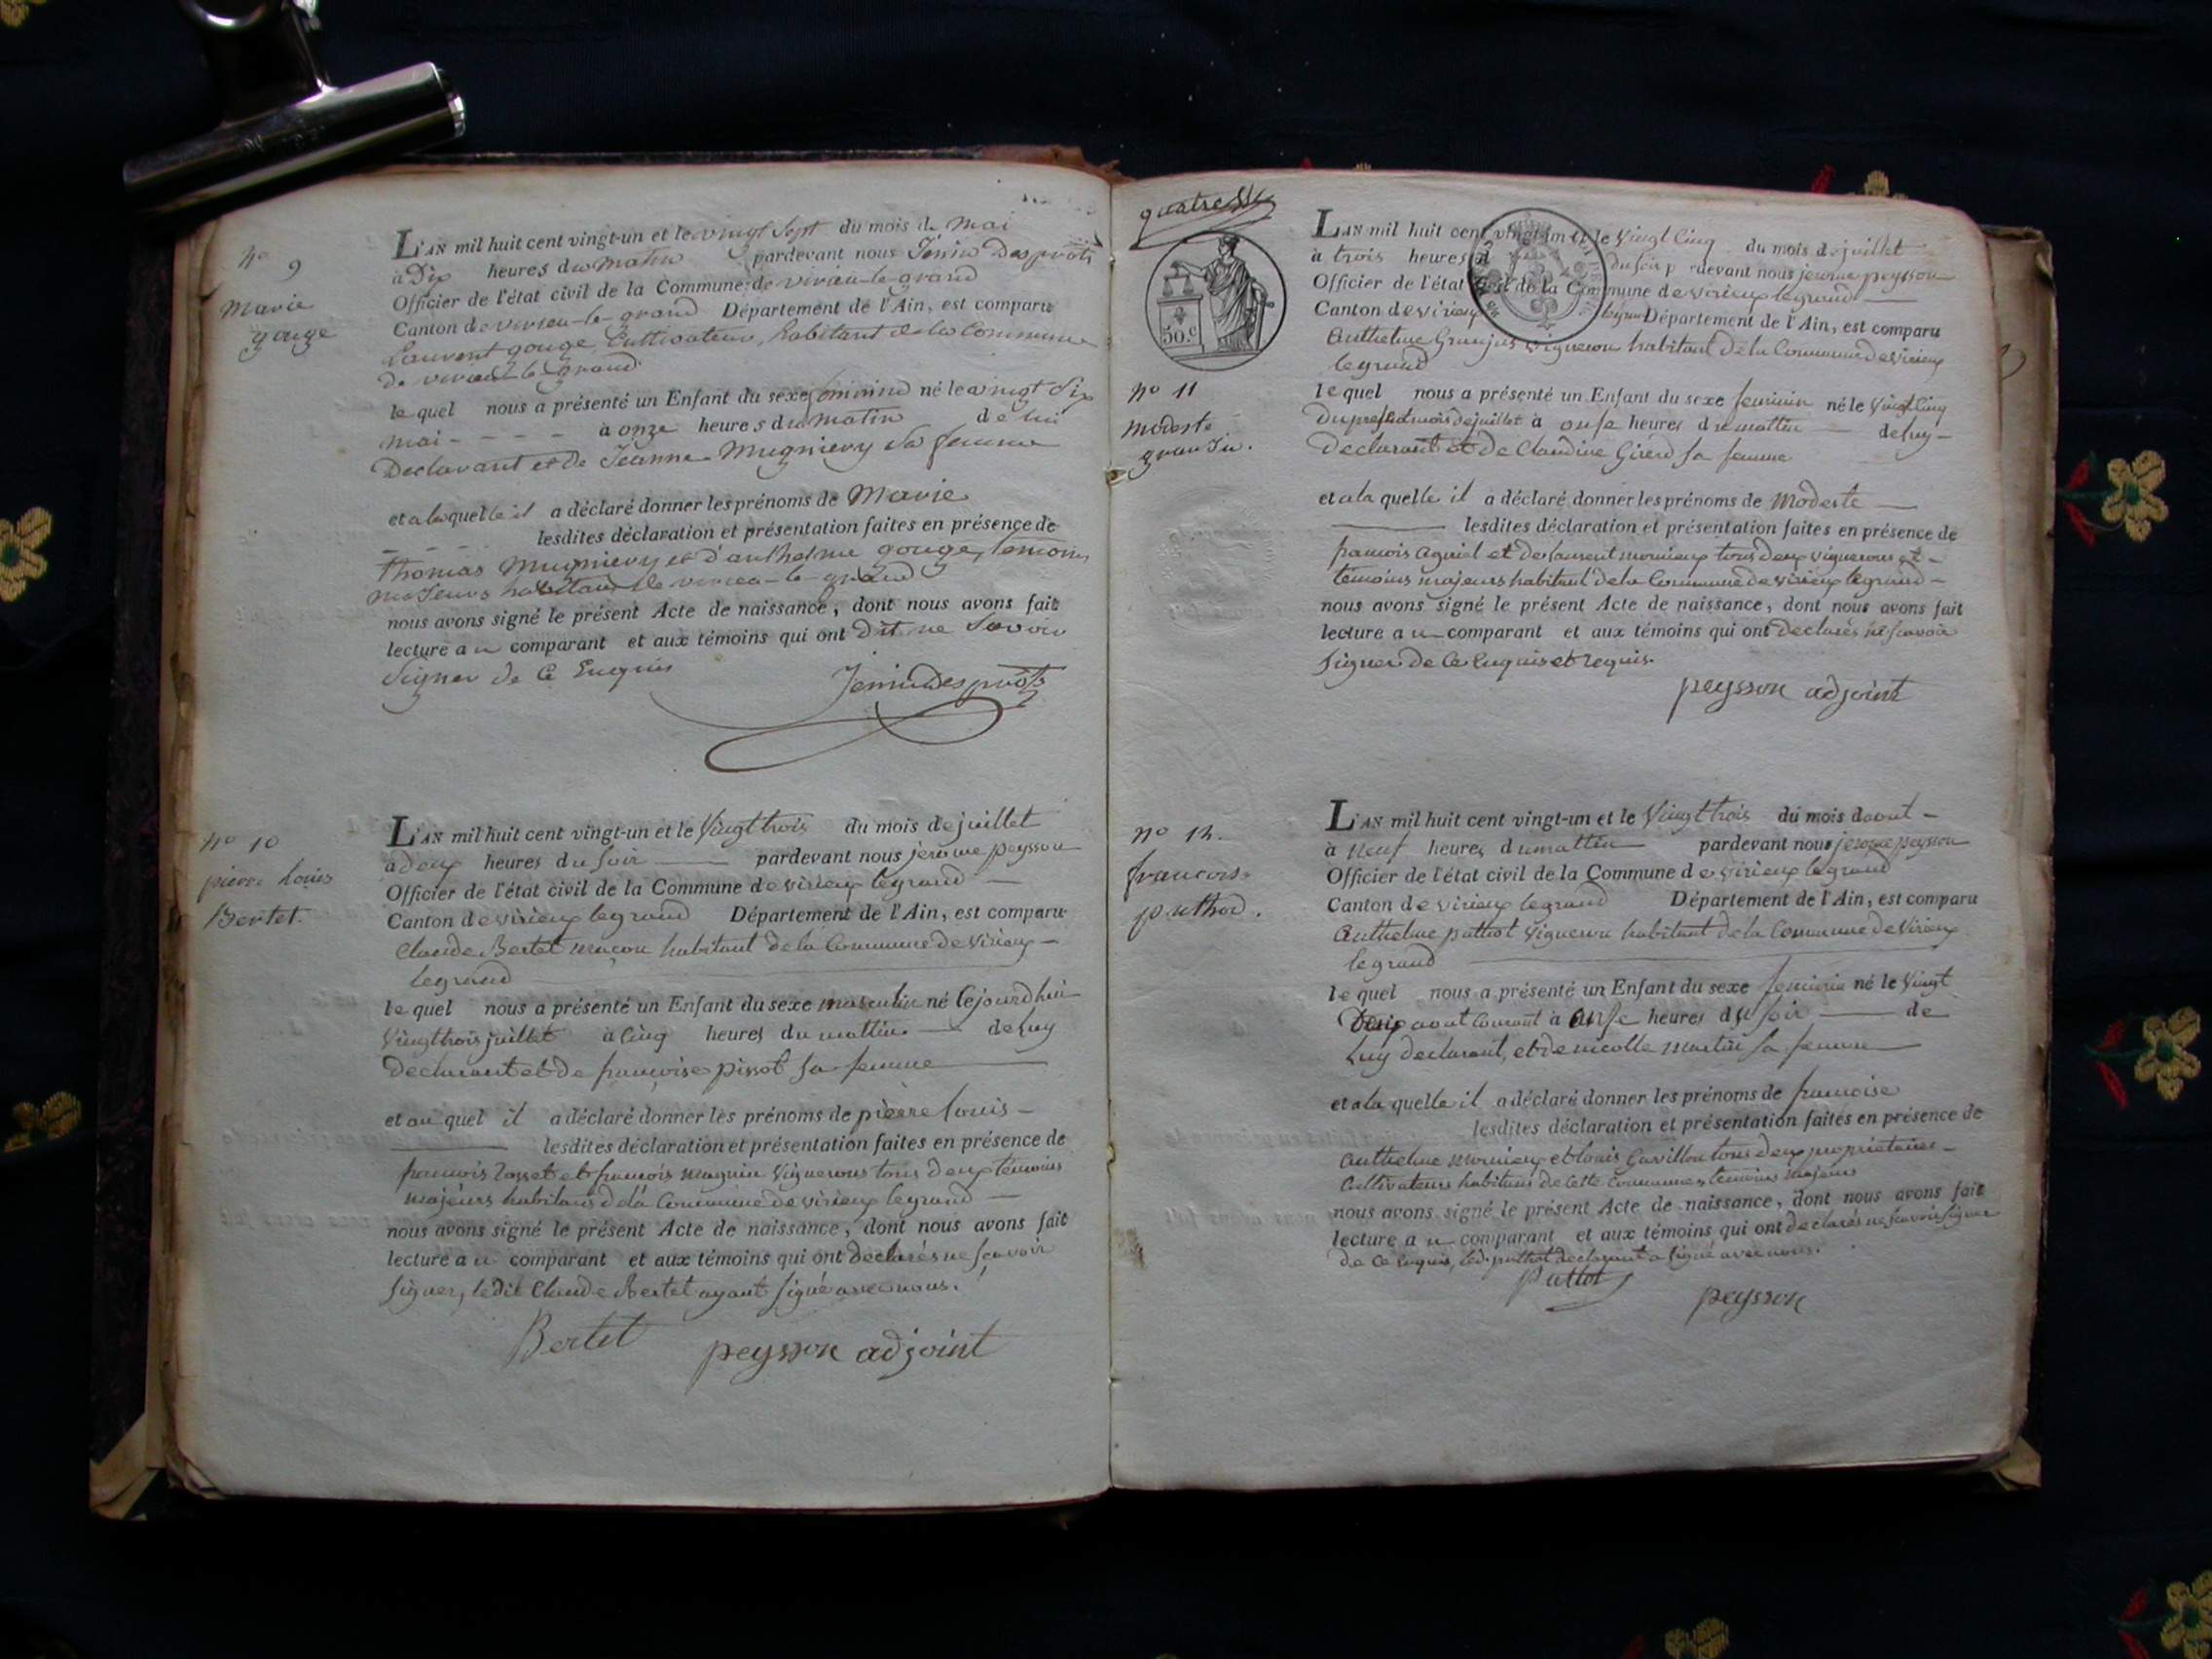 nº 9
Marie
gouge
L'AN mil huit cent vingt-un et le vingt sept du mois de Mai
à Dix heures du matin pardevant nous Jenin Desprots
Officier de l'état civil de la Commune de virieu-le-grand
Canton de virieu-le-grand Département de l'Ain, est comparu
Laurent gouge, Cultivateur, habitant de la Commune
de virieu-le-grand
le quel nous a présenté un Enfant du sexe féminin né le vingt Six
mai - - - - à onze heures du matin de lui
Declarant et de Jeanne Mugniery sa femme
et a laquelle il a déclaré donner les prénoms de Marie
- - - lesdites déclaration et présentation faites en présence de
Thomas Mugniery et d'anthelme gouge, temoins
majeurs habitans de virieu-le-grand
nous avons signé le présent Acte de naissance, dont nous avons fait
lecture au comparant et aux témoins qui ont dit ne Savoir
Signer de Ce Enquis
Jenin Desprots
nº 10
pierre louis
Bertet.
L'AN mil huit cent vingt-un et le Vingt trois du mois de juillet
à deux heures du soir pardevant nous jerome peysson
Officier de l'état civil de la Commune de virieux legrand
Canton de virieux legrand Département de l'Ain, est comparu
Claude Bertet maçon habitant de la Commune de Virieux
legrand
le quel nous a présenté un Enfant du sexe masculin né lejourdhui
Vingt trois juillet à Cinq heures du mattin de luy
declarant et de françoise pissot sa femme
et au quel il a déclaré donner les prénoms de pierre louis
lesdites déclaration et présentation faites en présence de
françois et françois magnin Vignerons tous deux témoins
majeurs habitans de la Commune de virieux legrand
nous avons signé le présent Acte de naissance, dont nous avons fait
lecture au comparant et aux témoins qui ont declarés ne sçavoir
signer, ledit Claude Bertet ayant signé avec nous.
Bertet peysson adjoint
quatre
50.c
nº 11
modeste
granju.
L'AN mil huit cent vingt-un et le Vingt Cinq du mois de juillet
à trois heures du soir pardevant nous jerome peysson
Officier de l'état civil de la Commune de virieux legrand
Canton de virieux legrand Département de l'Ain, est comparu
Anthelme Granjus Vigneron habitant de la Commune de virieux
legrand
le quel nous a présenté un Enfant du sexe feminin né le Vingt Cinq
du present mois de juillet à onse heures du mattin de luy
declarant et de Claudine Girerd sa femme
et a la quelle il a déclaré donner les prénoms de Modeste
lesdites déclaration et présentation faites en présence de
francois et de laurent monieux tous deux vignerons et
témoins majeurs habitant de la Commune de virieux legrand
nous avons signé le présent Acte de naissance, dont nous avons fait
lecture au comparant et aux témoins qui ont declarés ne sçavoir
signer de Ce Enquis et requis.
peysson adjoint
nº 12.
francoise
puthod.
L'AN mil huit cent vingt-un et le Vingt trois du mois daout
à neuf heures du mattin pardevant nous jerome peysson
Officier de l'état civil de la Commune de virieux legrand
Canton de virieux legrand Département de l'Ain, est comparu
Anthelme puttot Vigneron habitant de la Commune de Virieux
legrand
le quel nous a présenté un Enfant du sexe feminin né le Vingt
Deux aout Courant à onse heures du soir de
luy declarant, et de nicolle martin sa femme
et a la quelle il a déclaré donner les prénoms de francoise
lesdites déclaration et présentation faites en présence de
Anthelme monieux et louis Gavillon tous deux proprietaires
Cultivateurs habitans de Cette Commune, temoins majeurs
nous avons signé le présent Acte de naissance, dont nous avons fait
lecture au comparant et aux témoins qui ont declarés ne scavoir signer
de Ce Enquis, led. puttot declarant a signé avec nous.
puttot peysson